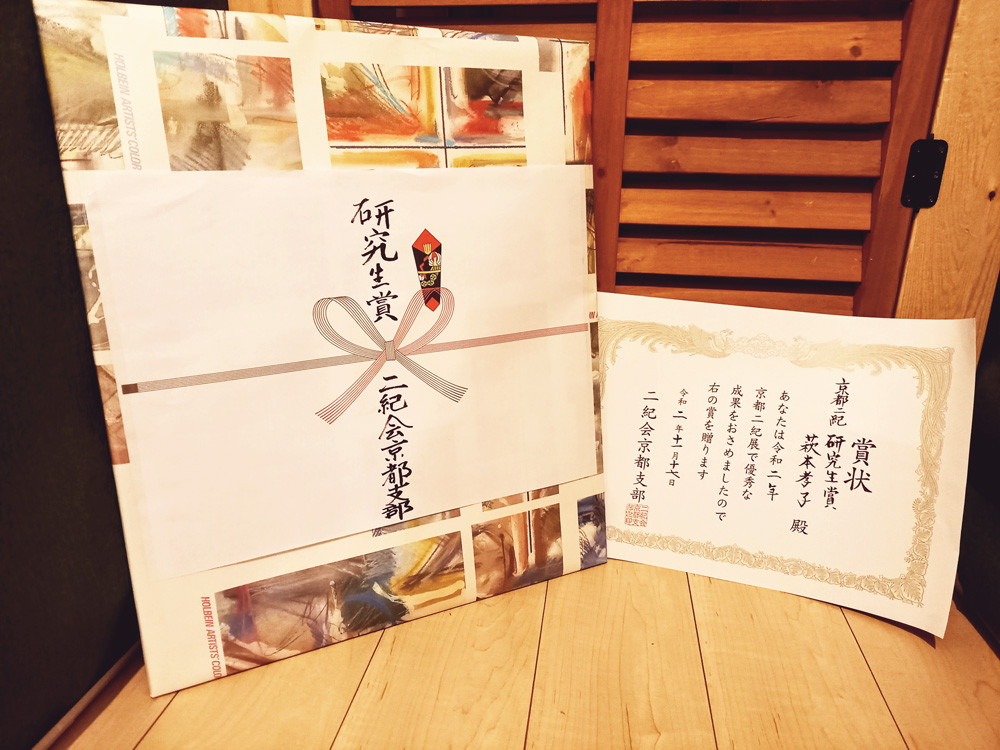 HOLBEIN ARTISTS' COLOR
研究生賞
二紀会京都支部
HOLBEIN ARTISTS' COLO
賞状
京都二紀
研究生賞
萩本孝子 殿
あなたは令和二年
京都二紀展で優秀な
成果をおさめましたので
右の賞を贈ります
令和二年十一月十七日
二紀会京都支部